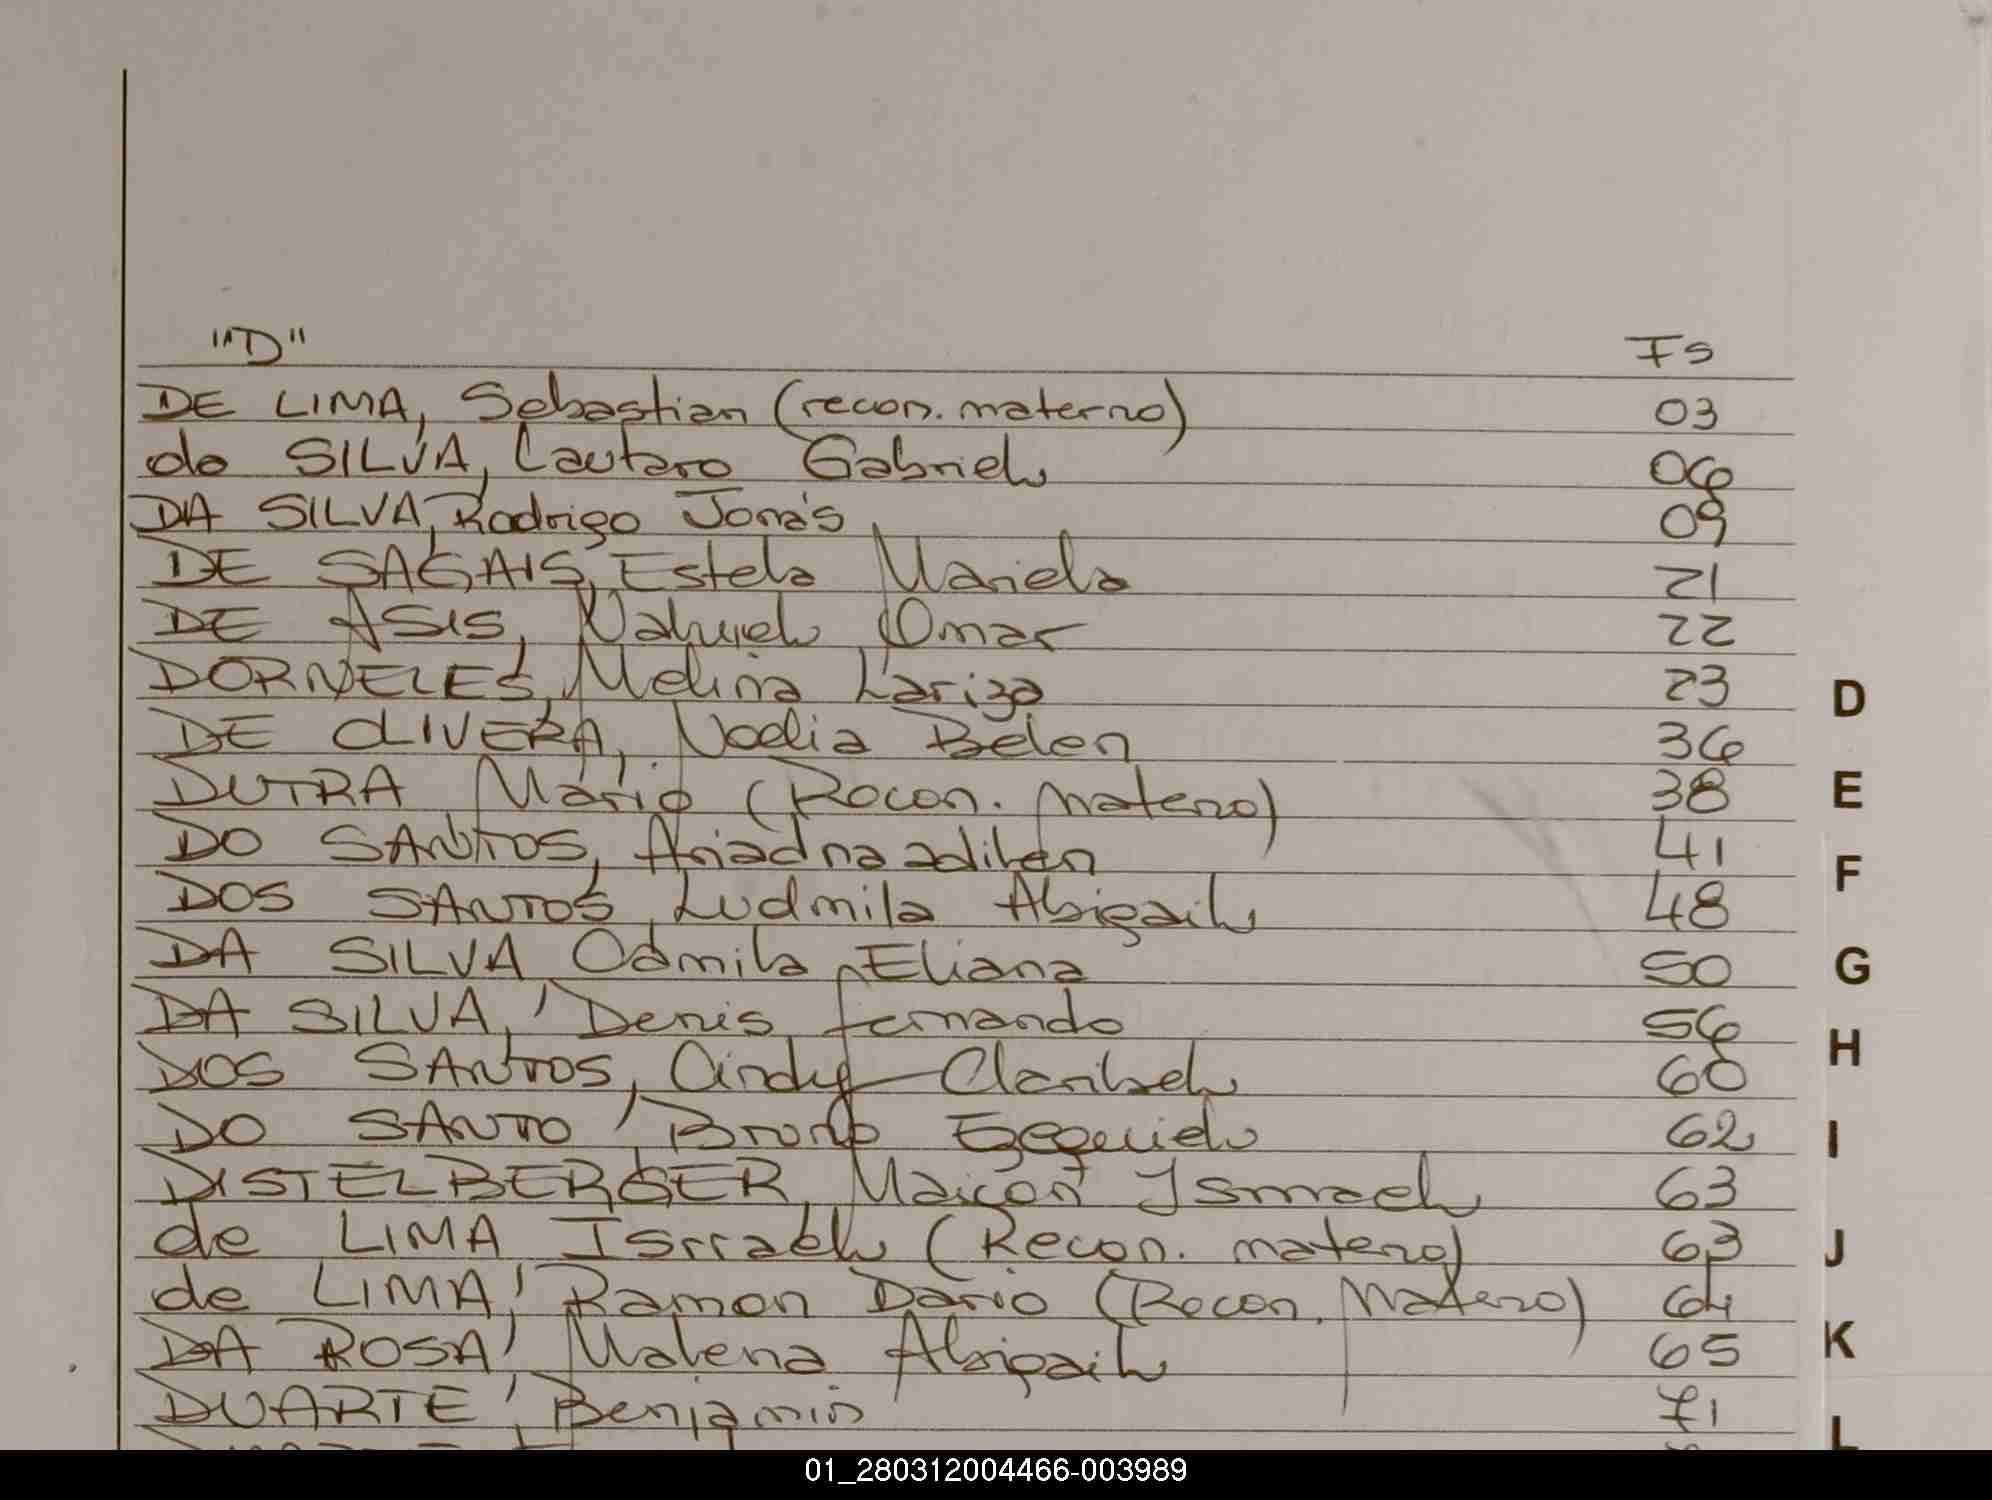 "D" Fs
DE LIMA, Sebastian (recon. materno) 03
do SILVA, Lautaro Gabriel 06
DA SILVA, Rodrigo Jonás 09
DE SAGAIS, Estela Mariela 21
DE ASIS, Nahuel Omar 22
DORNELES, Melina Lariza 23
D
DE OLIVERA, Noelia Belen 36
DUTRA Mario (Recon. Materno) 38
E
DO SANTOS, Ariadna 41
F
DOS SANTOS, Ludmila Abigail 48
DA SILVA Camila Eliana 50
G
DA SILVA, Denis fernando 56
H
DOS SANTOS, Cindy Claribel 60
DO SANTO, Bruno Ezequiel 62
I
DISTELBERGER, Maicon Ismael 63
de LIMA Isrrael (Recon. materno) 63
J
de LIMA, Ramon Dario (Recon. Materno) 64
DA ROSA, Malena Abigail 65
K
DUARTE, Benjamin 71
L
01_280312004466-003989